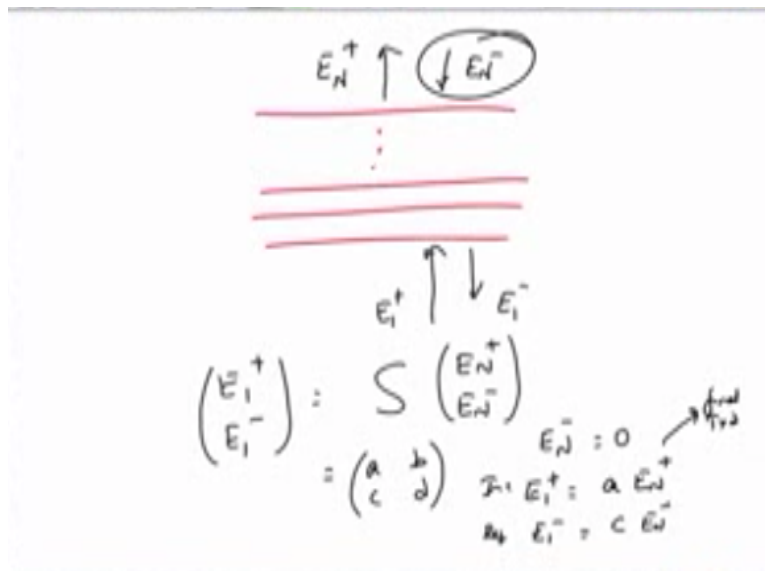 E_N^+ ↑ ↓ E_N^-
⋮
E_1^+ ↑ ↓ E_1^-
(E_1^+ E_1^-) = S (E_N^+ E_N^-)
= (a b c d)
E_N^- = 0
E_1^+ = a E_N^+
E_1^- = C E_N^-